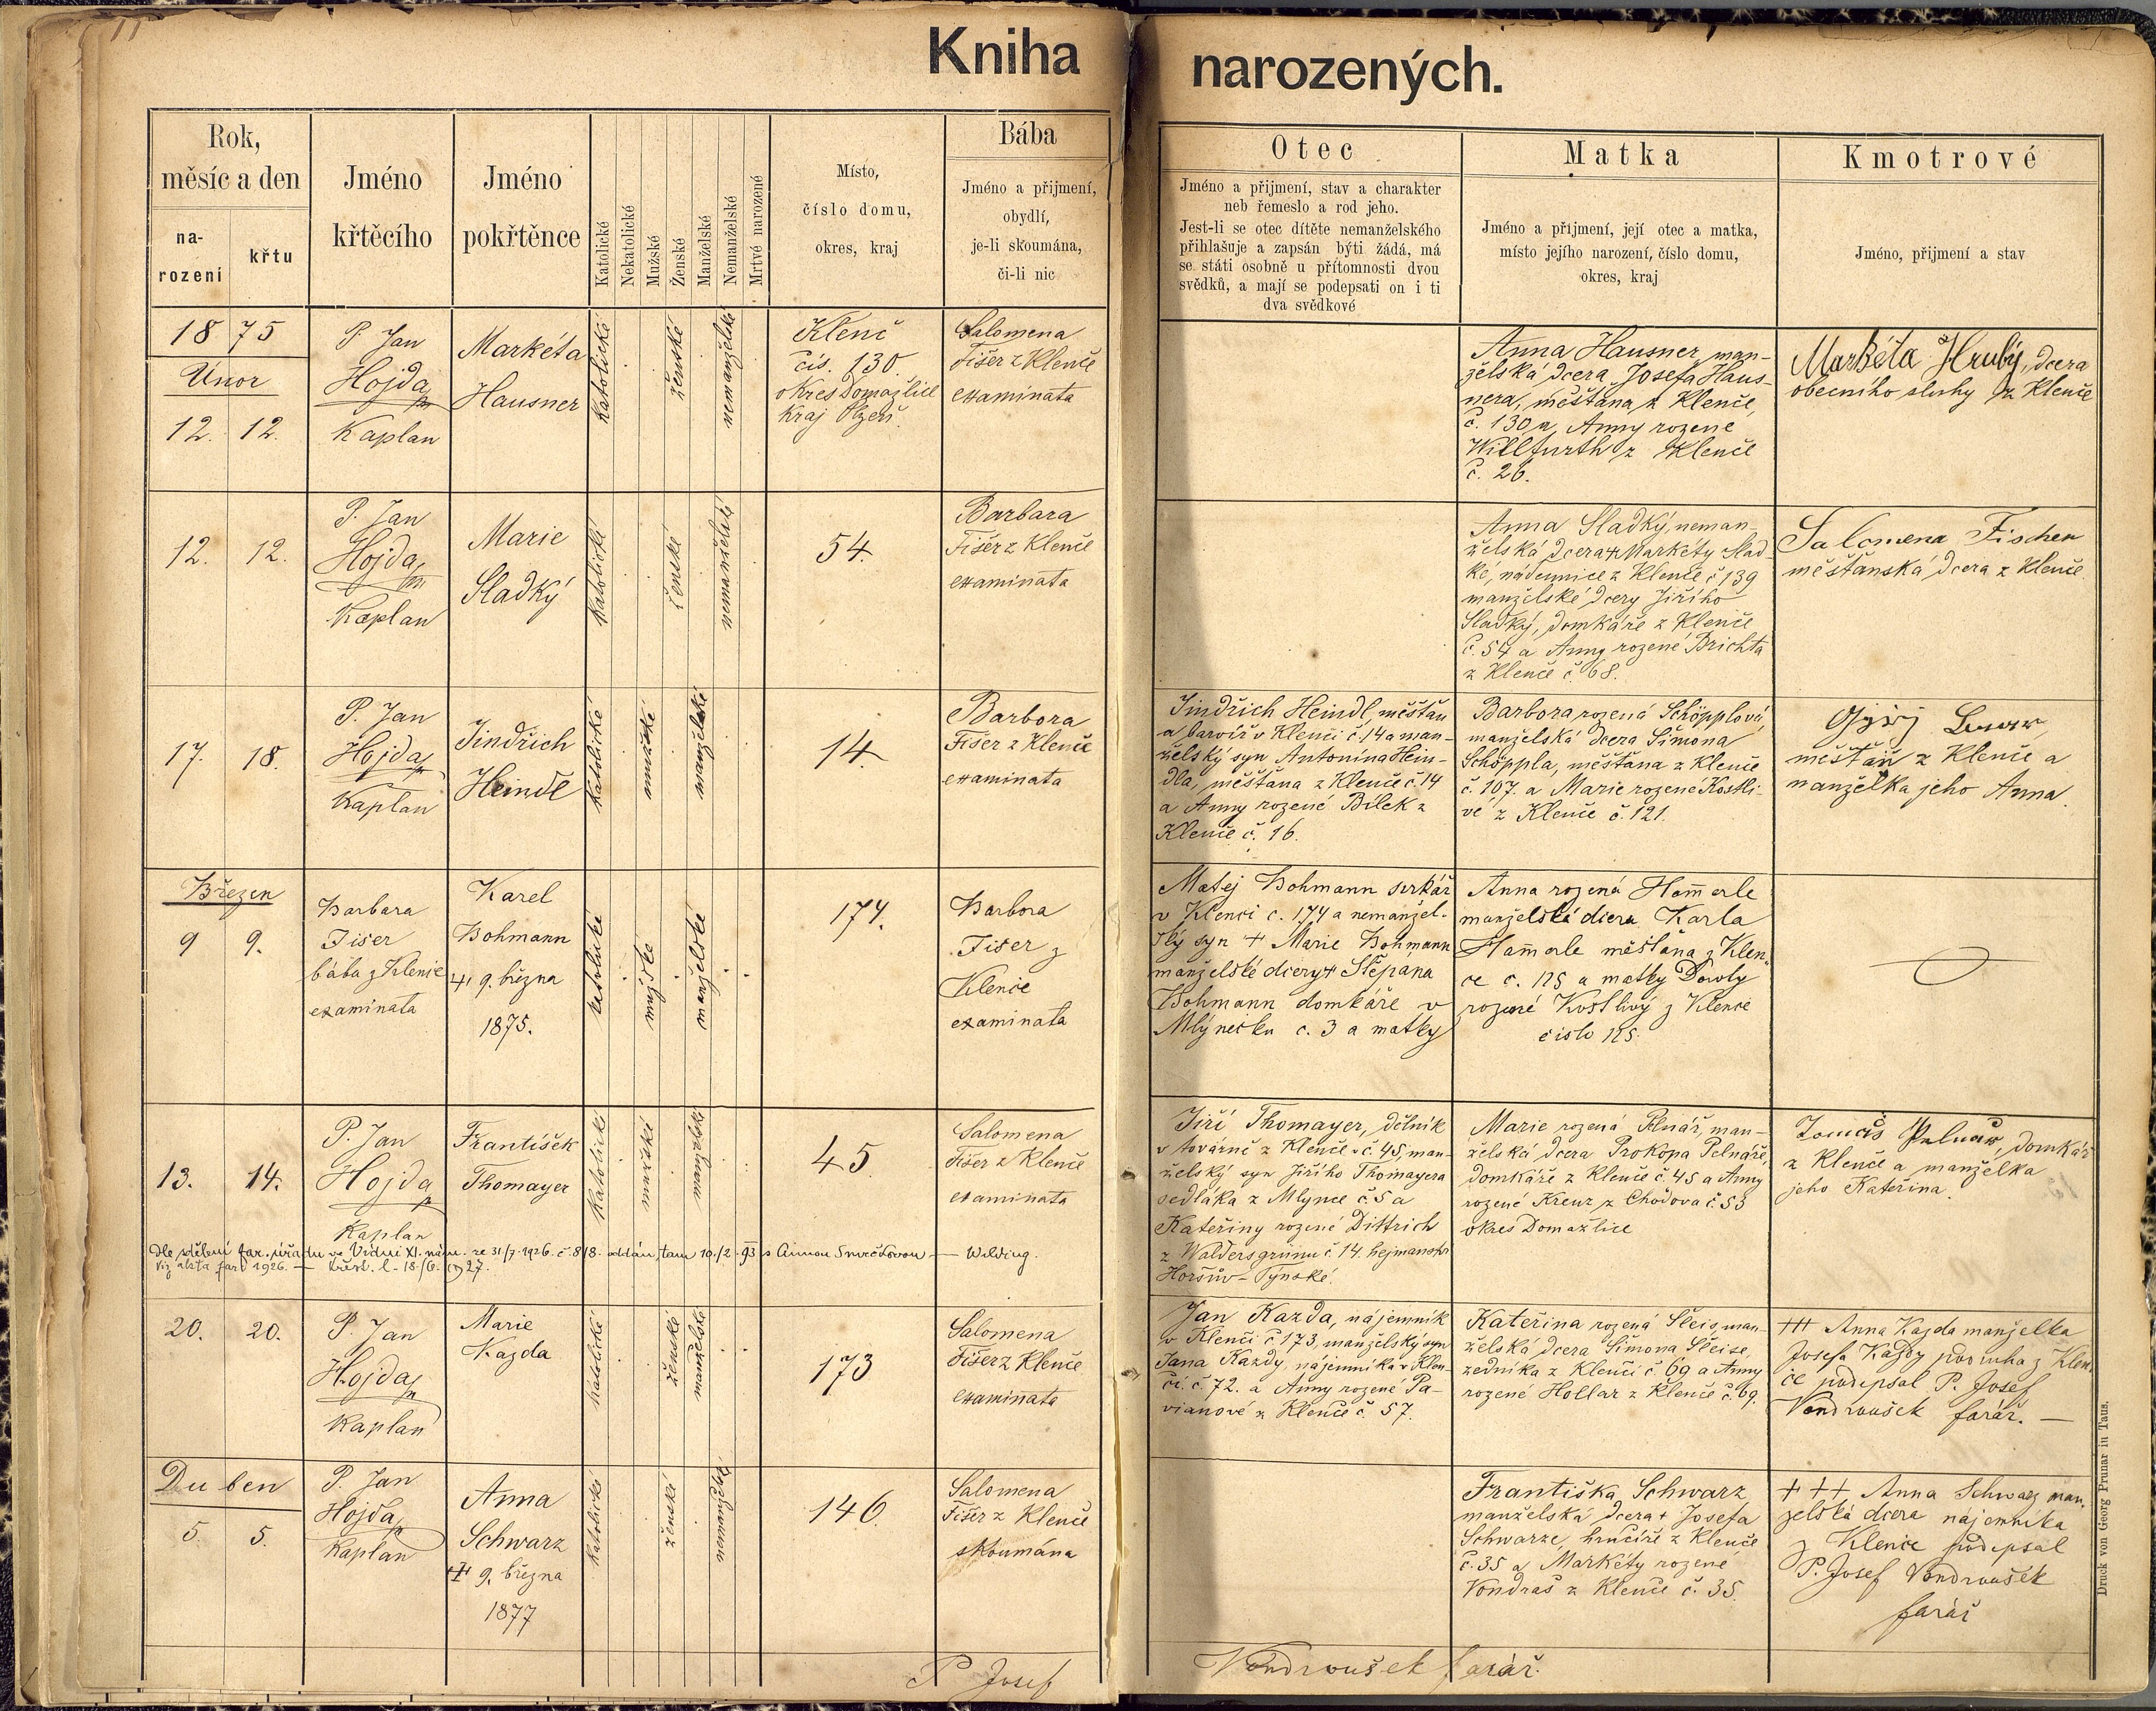 Kniha narozených.
Rok,
měsíc a den
na-
rození
křtu
Jméno
křtěcího
Jméno
pokřtěnce
Katolické
Nekatolické
Mužské
Ženské
Manželské
Nemanželské
Mrtvé narozené
Místo,
číslo domu,
okres, kraj
Bába
Jméno a přijmení,
obydlí,
je-li skoumána,
či-li nic
Otec
Jméno a přijmení, stav a charakter
neb řemeslo a rod jeho.
Jest-li se otec dítěte nemanželského
přihlašuje a zapsán býti žádá, má
se státi osobně u přítomnosti dvou
svědků, a mají se podepsati on i ti
dva svědkové
Matka
Jméno a přijmení, její otec a matka,
místo jejího narození, číslo domu,
okres, kraj
Kmotrové
Jméno, přijmení a stav
1875
Únor
12. 12.
P. Jan
Hojda
Kaplan
Markéta
Hausner
katolické
ženské
nemanželské
Klenč
čís. 130.
okres Domažlice
Kraj Plzeň.
Salomena
Fišer z Klenče
examinata
Anna Hausner, man-
želská dcera Josefa Haus-
nera, měšťana z Klenče,
č. 130 a Anny rozené
Willfurth z Klenče
č. 26.
Markéta Hrubý, dcera
obecního sluhy z Klenče
12. 12.
P. Jan
Hojda
Kaplan
Marie
Sladký
katolické
ženské
nemanželské
54.
Barbara
Fišer z Klenče
examinata
Anna Sladký, neman-
želská dcera + Markéty Slad-
ké, nádennice z Klenče č 139
manželské dcery Jiřího
Sladký, domkáře z Klenče
č. 54 a Anny rozené Brichta
z Klenče č. 68.
Salomena Fischer
měšťanská dcera z Klenče
17. 18.
P. Jan
Hojda
Kaplan
Jindřich
Heindl
katolické
mužské
manželské
14.
Barbora
Fišer z Klenče
examinata
Jindřich Heindl, měšťan
a barvíř v Klenči č. 14 a man-
želský syn Antonína Hein-
dla, měšťana z Klenče č. 14
a Anny rozené Bílek z
Klenče č. 16.
Barbora rozená Schöpplová,
manželská dcera Šimona
Schöppla, měšťana z Klenče
č. 107. a Marie rozené Kostli-
vé z Klenče č. 121.
měšťan z Klenče a
manželka jeho Anna.
Březen
9 9.
Barbara
Fišer
bába z Klenče
examinata
Karel
Bohmann
9. března
1875.
katolické
mužské
manželské
174.
Barbora
Fišer z
Klenče
examinata
Matej Bohmann sirkář
v Klenci c. 174 a nemanžel-
ský syn + Marie Bohmann
manželské dcery + Stěpána
Bohmann domkáře v
Mlýnečku c. 3 a matky
Anna rozená Hammerle
manželská dcera Karla
Hammerle měšťana z Klen-
ce c. 125 a matky Doroty
rozené Kostlivý z Klence
cislo 125.
13. 14.
P. Jan
Hojda
Kaplan
František
Thomayer
katolické
mužské
manželské
45.
Salomena
Fišer z Klenče
examinata
Jiří Thomayer, dělník
v továrně z Klenče č. 45, man-
želský syn Jiřího Thomayera
sedláka z Mlýnce č. 5 a
Kateřiny rozené Dittrich
z Waldersgrünu č 14. hejmanstv.
Horšův-Týnské.
Marie rozená Pelnář, man-
želská dcera Prokopa Pelnáře,
domkáře z Klenče č. 45 a Anny
rozené Kreuz z Chodova č. 53
okres Domažlice
Tomáš Pelnář, domkář
z Klenče a manželka
jeho Kateřina.
Dle sdělení far. úřadu ve Vídni XI. ze 31/7. 1926. č. 818. oddán tam 10./2. 93 s Annou Wilding.
20. 20.
P. Jan
Hojda
Kaplan
Marie
Kazda
katolické
ženské
manželské
173
Salomena
Fišer z Klenče
examinata
Jan Kazda, nájemník
v Klenči č 173, manželský syn
Jana Kazdy, nájemníka v Klen-
či. č. 72. a Anny rozené Pa-
vianové z Klenče č. 57.
Kateřina rozená Šleis, man-
želská dcera Šimona Šleise,
zedníka z Klenči č. 69 a Anny
rozené Hollar z Klenče č. 69.
+++ Anna Kazda manželka
Josefa Kazdy podruha z Klen-
če podepsal P. Josef
Vondroušek farář. —
Duben
5. 5.
P. Jan
Hojda
Kaplan
Anna
Schwarz
9. března
1877
katolické
ženské
nemanželské
146.
Salomena
Fišer z Klenče
skoumána
Františka Schwarz
manželská dcera + Josefa
Schwarze, hrnčíře z Klenče
č. 35 a Markéty rozené
Vondraš z Klenče č. 35.
+++ Anna Schwarz man-
želská dcera nájemníka
z Klence podepsal
P. Josef Vondroušek
farář
P. Josef Vondroušek farář.
Druck von Georg Prunar in Taus.